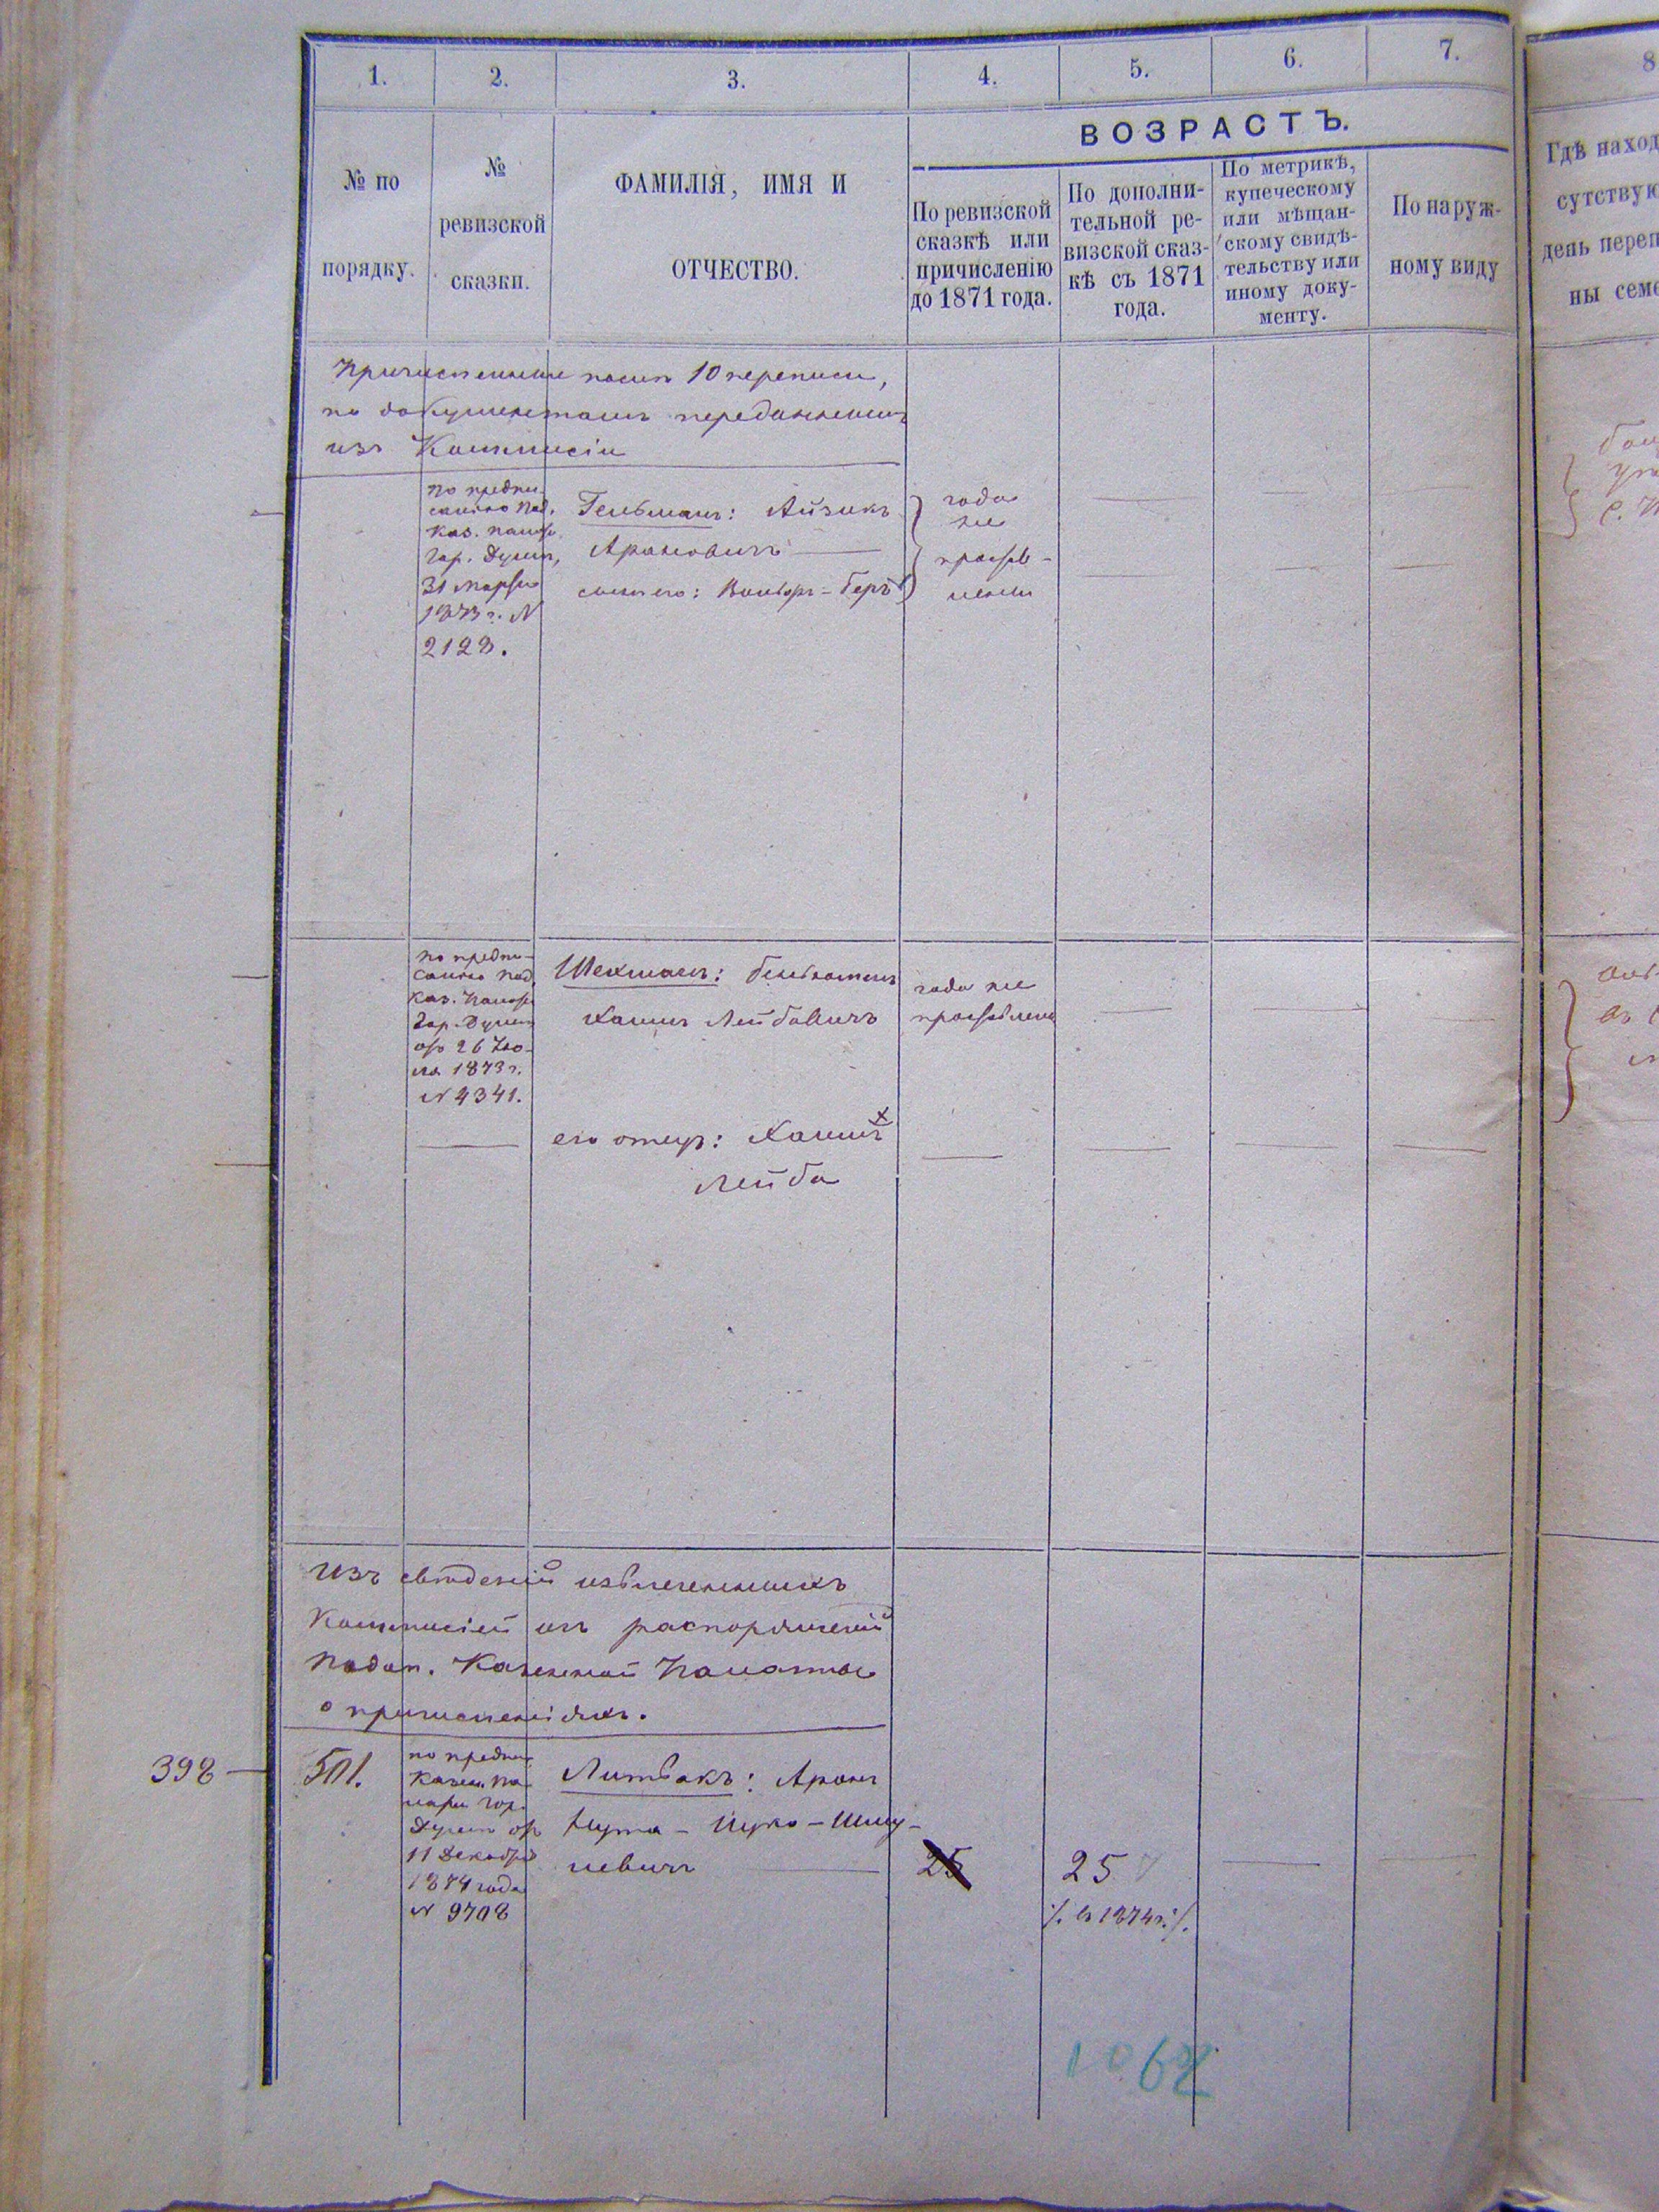 1.
2.
3.
4.
5.
6.
7.
8
№ по
порядку.
№
ревизской
сказки.
ФАМИЛІЯ, ИМЯ И
ОТЧЕСТВО.
ВОЗРАСТЪ.
По ревизской
сказкѣ или
причисленію
до 1871 года.
По дополни-
тельной ре-
визской сказ-
кѣ съ 1871
года.
По метрикѣ,
купеческому
или мѣщан-
скому свидѣ-
тельству или
иному доку-
менту.
По наруж-
ному виду
Гдѣ наход
сутствую
день переп
ны семе
Причисленные послѣ 10 переписи,
по документамъ переданнымъ
изъ Коммисіи
по предпи-
санію Под.
Каз. Палаты
Гор. Думѣ,
31 Марта
1873 г. N
2128.
Гельманъ: Айзикъ
Ароновичъ
сынъ его: Вольфъ-Беръ
года
не
простав-
лены
по предпи-
санію Под.
Каз. Палаты
Гор. Думѣ
отъ 26 Iю-
ля 1873 г.
N 4341.
Шехманъ:
Хаимъ Лейбовичъ
года не
проставлены
его отецъ: Хаимъ
Лейба
Изъ свѣдѣній извлеченныхъ
Коммисіей изъ распоряженій
Подол. Казенной Палаты
о причисленіяхъ.
398
501.
по предпи-
Казен. Па-
латы Гор.
Думѣ отъ
11 Декабря
1874 года
N 9708
Литвакъ: Аронъ
Нута - Ицко - Шму-
левичъ
25
25
/. въ 1874 г. /.
1062